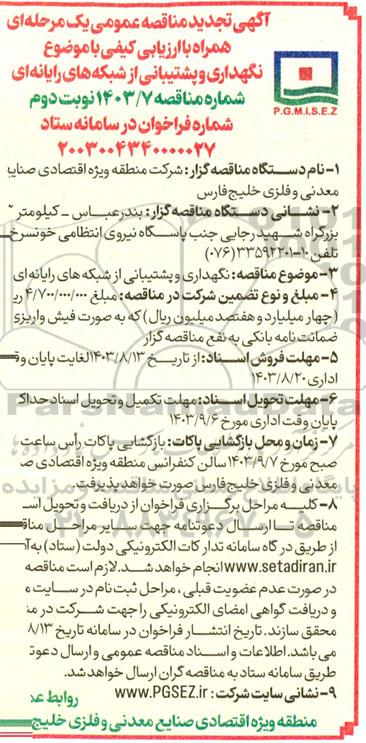 آگهی تجدید مناقصه عمومی یک مرحله‌ای
همراه با ارزیابی کیفی با موضوع
نگهداری و پشتیبانی از شبکه‌های رایانه‌ای
شماره مناقصه ۱۴۰۳/۷ نوبت دوم
شماره فراخوان در سامانه ستاد
۲۰۰۳۰۰۴۳۴۰۰۰۰۰۲۷
P.G.M.I.S.E.Z
۱- نام دستگاه مناقصه گزار: شرکت منطقه ویژه اقتصادی صنایع
معدنی و فلزی خلیج‌فارس
۲- نشانی دستگاه مناقصه گزار: بندرعباس - کیلومتر
بزرگراه شهید رجایی جنب پاسگاه نیروی انتظامی خونسرخ
تلفن ۱۰-۳۳۵۹۲۲۰۱ (۰۷۶)
۳- موضوع مناقصه: نگهداری و پشتیبانی از شبکه های رایانه ای
۴- مبلغ و نوع تضمین شرکت در مناقصه: مبلغ ۴/۷۰۰/۰۰۰/۰۰۰ ری
(چهار میلیارد و هفتصد میلیون ریال) که به صورت فیش واریزی
ضمانت نامه بانکی به نفع مناقصه گزار
۵- مهلت فروش اسناد: از تاریخ ۱۴۰۳/۸/۱۳ لغایت پایان وق
اداری ۱۴۰۳/۸/۲۰
۶- مهلت تحویل اسناد: مهلت تکمیل و تحویل اسناد حداک
پایان وقت اداری مورخ ۱۴۰۳/۹/۶
۷- زمان و محل بازگشایی پاکات: بازگشایی پاکات رأس ساعت
صبح مورخ ۱۴۰۳/۹/۷ سالن کنفرانس منطقه ویژه اقتصادی ص
معدنی و فلزی خلیج فارس صورت خواهد پذیرفت.
۸- کلیه مراحل برگزاری فراخوان از دریافت و تحویل اس
مناقصه تا ارسال دعوتنامه جهت سایر مراحل مناق
از طریق درگاه سامانه تدارکات الکترونیکی دولت (ستاد) به آد
www.setadiran.ir انجام خواهد شد. لازم است مناقصه
در صورت عدم عضویت قبلی، مراحل ثبت نام در سایت م
و دریافت گواهی امضای الکترونیکی را جهت شرکت در من
محقق سازند. تاریخ انتشار فراخوان در سامانه تاریخ ۸/۱۳
می باشد. اطلاعات و اسناد مناقصه عمومی و ارسال دعوت
طریق سامانه ستاد به مناقصه گران ارسال خواهد شد.
۹- نشانی سایت شرکت: www.PGSEZ.ir
روابط عم
منطقه ویژه اقتصادی صنایع معدنی و فلزی خلیج